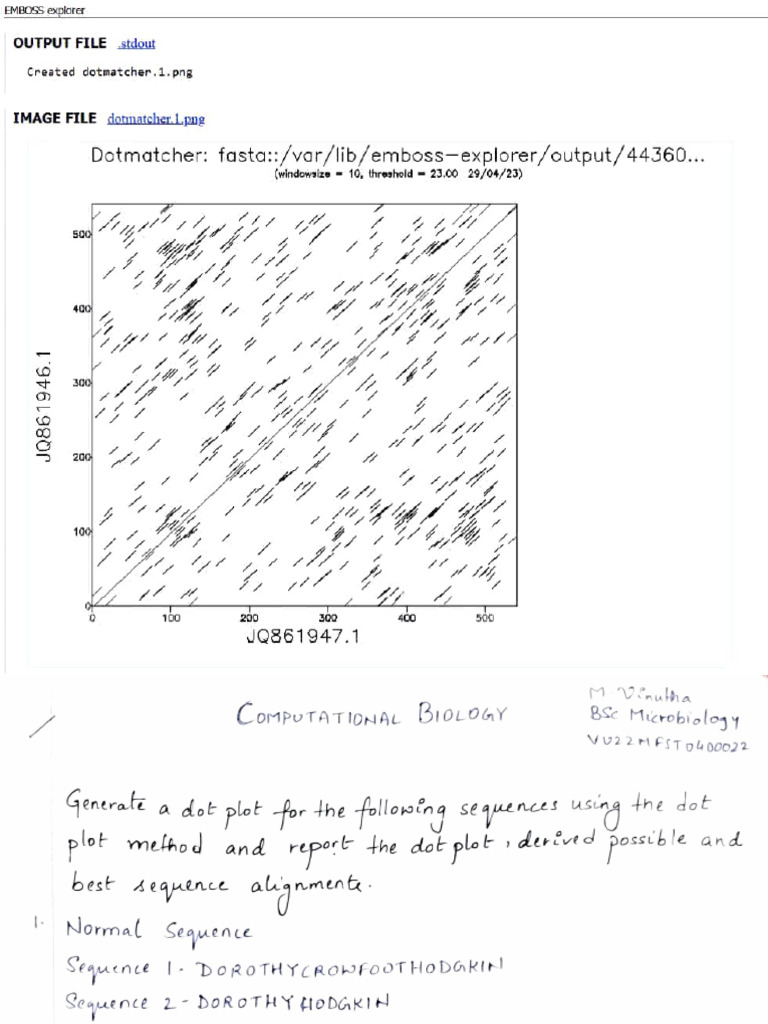 EMBOSS explorer
OUTPUT FILE .stdout
Created dotmatcher.1.png
IMAGE FILE dotmatcher.1.png
Dotmatcher: fasta::/var/lib/emboss-explorer/output/44360...
(windowsize = 10, threshold = 23.00 29/04/23)
500
400
300
200
100
0
JQ861946.1
0 100 200 300 400 500
JQ861947.1
M. Vinutha
COMPUTATIONAL BIOLOGY
BSc Microbiology
VU22MFST0400022
Generate a dot plot for the following sequences using the dot
plot method and report the dotplot, derived possible and
best sequence alignments.
1. Normal Sequence
Sequence 1 - DOROTHYCROWFOOTHODGKIN
Sequence 2 - DOROTHYHODGKIN